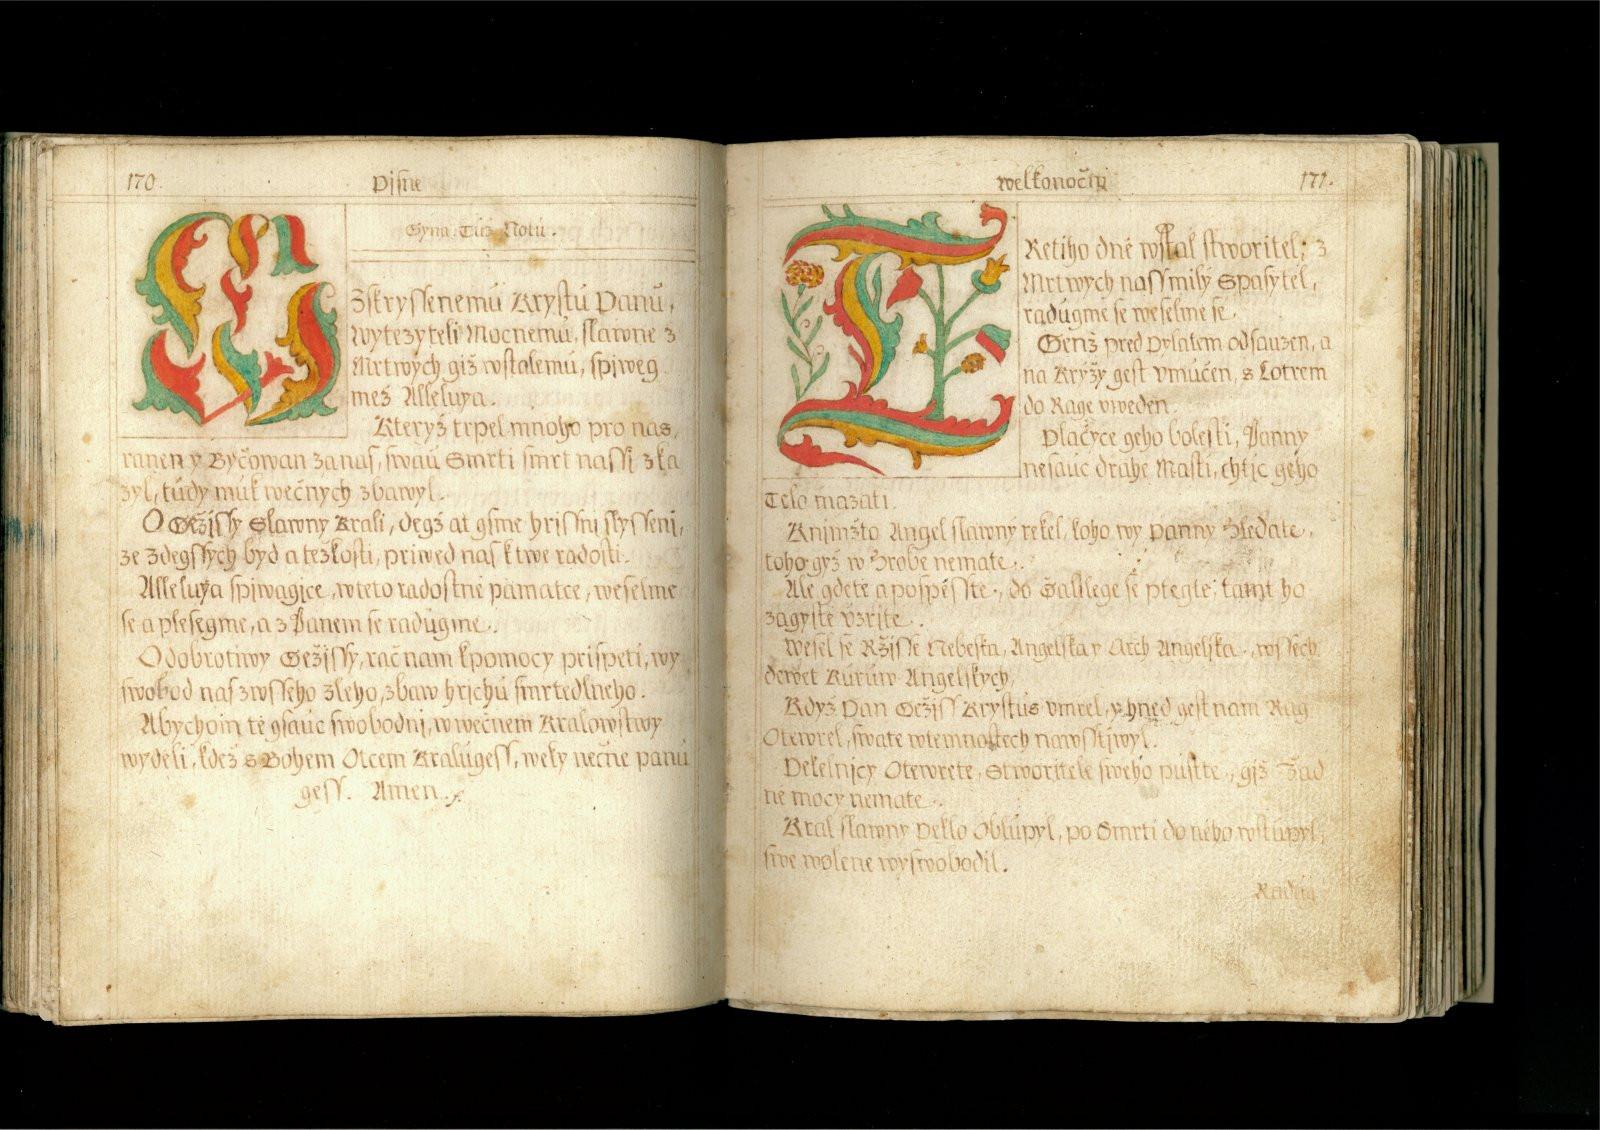 170.
Pisne
Gyna. Túž Notú.
W
zkryssenemú Krystú Panú,
Wytězyteli Mocnemú, slawně z
Mrtwých giž wstalemú, spiweg
mež Alleluya.
Kteryž trpel mnoho pro nas,
ranen y Byčowan za nas, swaú Smrti smrt nassi zka
zyl, túdy múk wečnych zbawyl.
O Gežissy Slawny Krali, degž at gsme hrissni slysseni,
ze zdegssych byd a težkosti, priwed nas k twe radosti.
Alleluya spiwagice, w teto radostné pamatce, weselme
se a plesegme, a z Panem se radúgme.
O dobrotiwy Gežissy, rač nam k pomocy prispeti, wy
swobod nas zewsseho zleho, zbaw hrichú smrtedlneho.
Abychom tě gsauc swobodni, w wečnem Kralowstwy
wyděli, kdež s Bohem Otcem Kralúgess, weky nečně panú
gess. Amen.
welkonočni
171.
T
Retiho dně wstal stworitel, z
Mrtwych nass milý Spasytel,
radúgme se weselme se.
Genž pred Pylatem odsauzen, a
na Kryžy gest vmúčen, s Lotrem
do Rage vweden.
Plačyce geho bolesti, Panny
nesauc drahe Masti, chtic geho
Telo mazati.
Knimžto Angel slawný rekel, koho wy Panny Hledate,
toho gyž w Hrobe nemate.
Ale gdětě a pospěsste, do Galilege se ptegte, tamt ho
zagystě vzrite.
Wesel se Ržisse Nebeska, Angelska y Arch Angelska, wssech
dewet Kúrúw Angelskych,
Když Pan Gežiss Krystús vmrel, y hned gest nam Rag
Otewrel, swate w temnostech nawsstiwyl.
Pekelnicy Otewrete, Stworitele sweho pustte, giž žad
ne mocy nemate.
Kral slawny Peklo Oblúpyl, po Smrti do nebo wstúpyl,
swe wolene wyswobodil.
Radúg